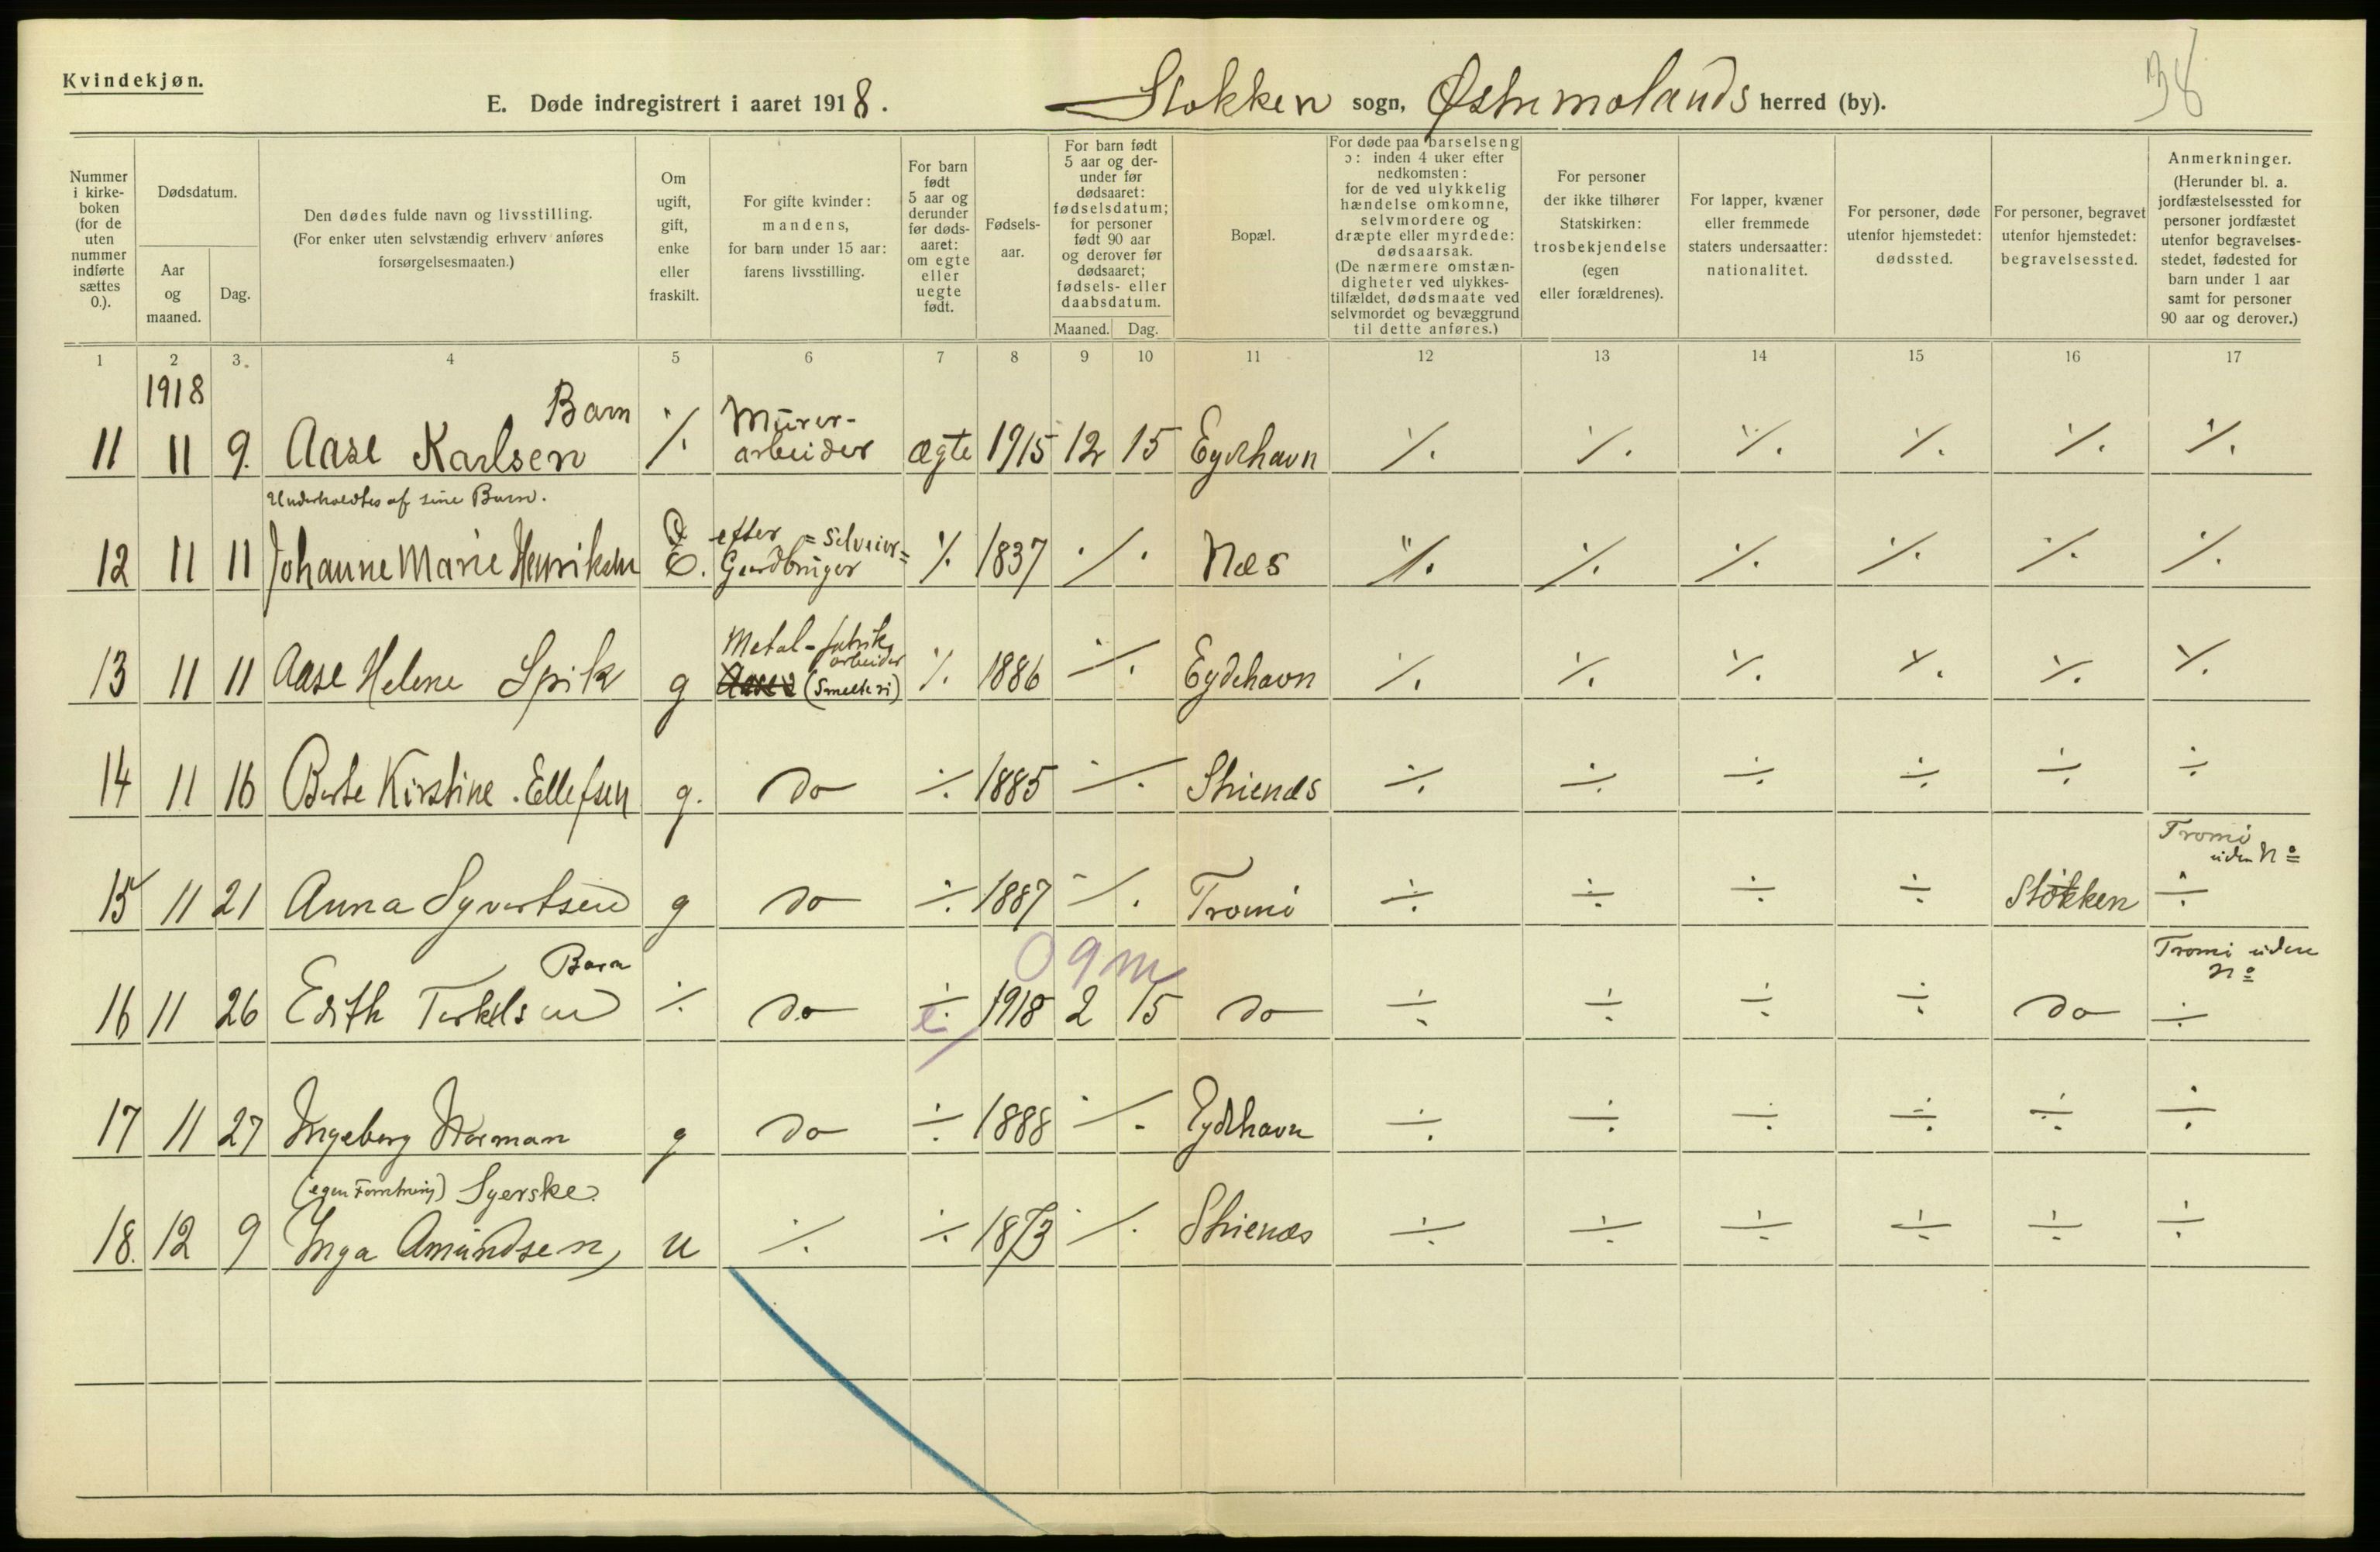 Kvindekjøn.
E. Døde indregistrert i aaret 1918. Stokken sogn, Østremolands herred (by).
38
Nummer i kirkeboken (for de uten nummer indførte sættes 0.).
Dødsdatum.
Aar og maaned.
Dag.
Den dødes fulde navn og livsstilling.
(For enker uten selvstændig erhverv anføres forsørgelsesmaaten.)
Om ugift, gift, enke eller fraskilt.
For gifte kvinder: mandens, for barn under 15 aar: farens livsstilling.
For barn født 5 aar og derunder før dødsaaret: om egte eller uegte født.
Fødselsaar.
For barn født 5 aar og derunder før dødsaaret: fødselsdatum; for personer født 90 aar og derover før dødsaaret; fødsels- eller daabsdatum.
Maaned. Dag.
Bopæl.
For døde paa barselseng ɔ: inden 4 uker efter nedkomsten: for de ved ulykkelig hændelse omkomne, selvmordere og dræpte eller myrdede: dødsaarsak. (De nærmere omstændigheter ved ulykkestilfældet, dødsmaate ved selvmordet og bevæggrund til dette anføres.)
For personer der ikke tilhører Statskirken: trosbekjendelse (egen eller forældrenes).
For lapper, kvæner eller fremmede staters undersaatter: nationalitet.
For personer, døde utenfor hjemstedet: dødssted.
For personer, begravet utenfor hjemstedet: begravelsessted.
Anmerkninger. (Herunder bl. a. jordfæstelsessted for personer jordfæstet utenfor begravelsesstedet, fødested for barn under 1 aar samt for personer 90 aar og derover.)
1 2 3. 4 5 6 7 8 9 10 11 12 13 14 15 16 17
1918
Barn Murer-
11 11 9. Aase Karlsen ⁒ arbeider ægte 1915 12 15 Eydehavn ⁒ ⁒ ⁒ ⁒ ⁒ ⁒
Underholdtes af sine Barn.
efter = Selveier=
12 11 11 Johanne Marie Henriksen E. Gardbruger ⁒ 1837 ⁒ Næs ⁒ ⁒ ⁒ ⁒ ⁒ ⁒
Metal-fabrik
arbeider
13 11 11 Aase Helene Spik g (Smelteri) ⁒ 1886 ⁒ Eydehavn ⁒ ⁒ ⁒ ⁒ ⁒ ⁒
14 11 16 Berte Kirstine Ellefsen g. do ÷ 1885 ⁒ Strenæs ÷ ÷ ÷ ÷ ÷ ÷
Tromø
uden No
15 11 21 Anna Syvertsen g do ÷ 1887 ⁒ Tromø ÷ ÷ ÷ ÷ Stokken ÷
0 9 m
Barn Tromø uden
No
16 11 26 Edith Terkelsen ÷ do ÷ 1918 2 15 do ÷ ÷ ÷ ÷ do ÷
e
17 11 27 Ingeborg Norman g do ÷ 1888 ⁒ Eydehavn ÷ ÷ ÷ ÷ ÷ ÷
(egen Forretning) Syerske.
18. 12 9 Inga Amundsen, u ⁒ ÷ 1873 ⁒ Strenæs ÷ ÷ ÷ ÷ ÷ ÷